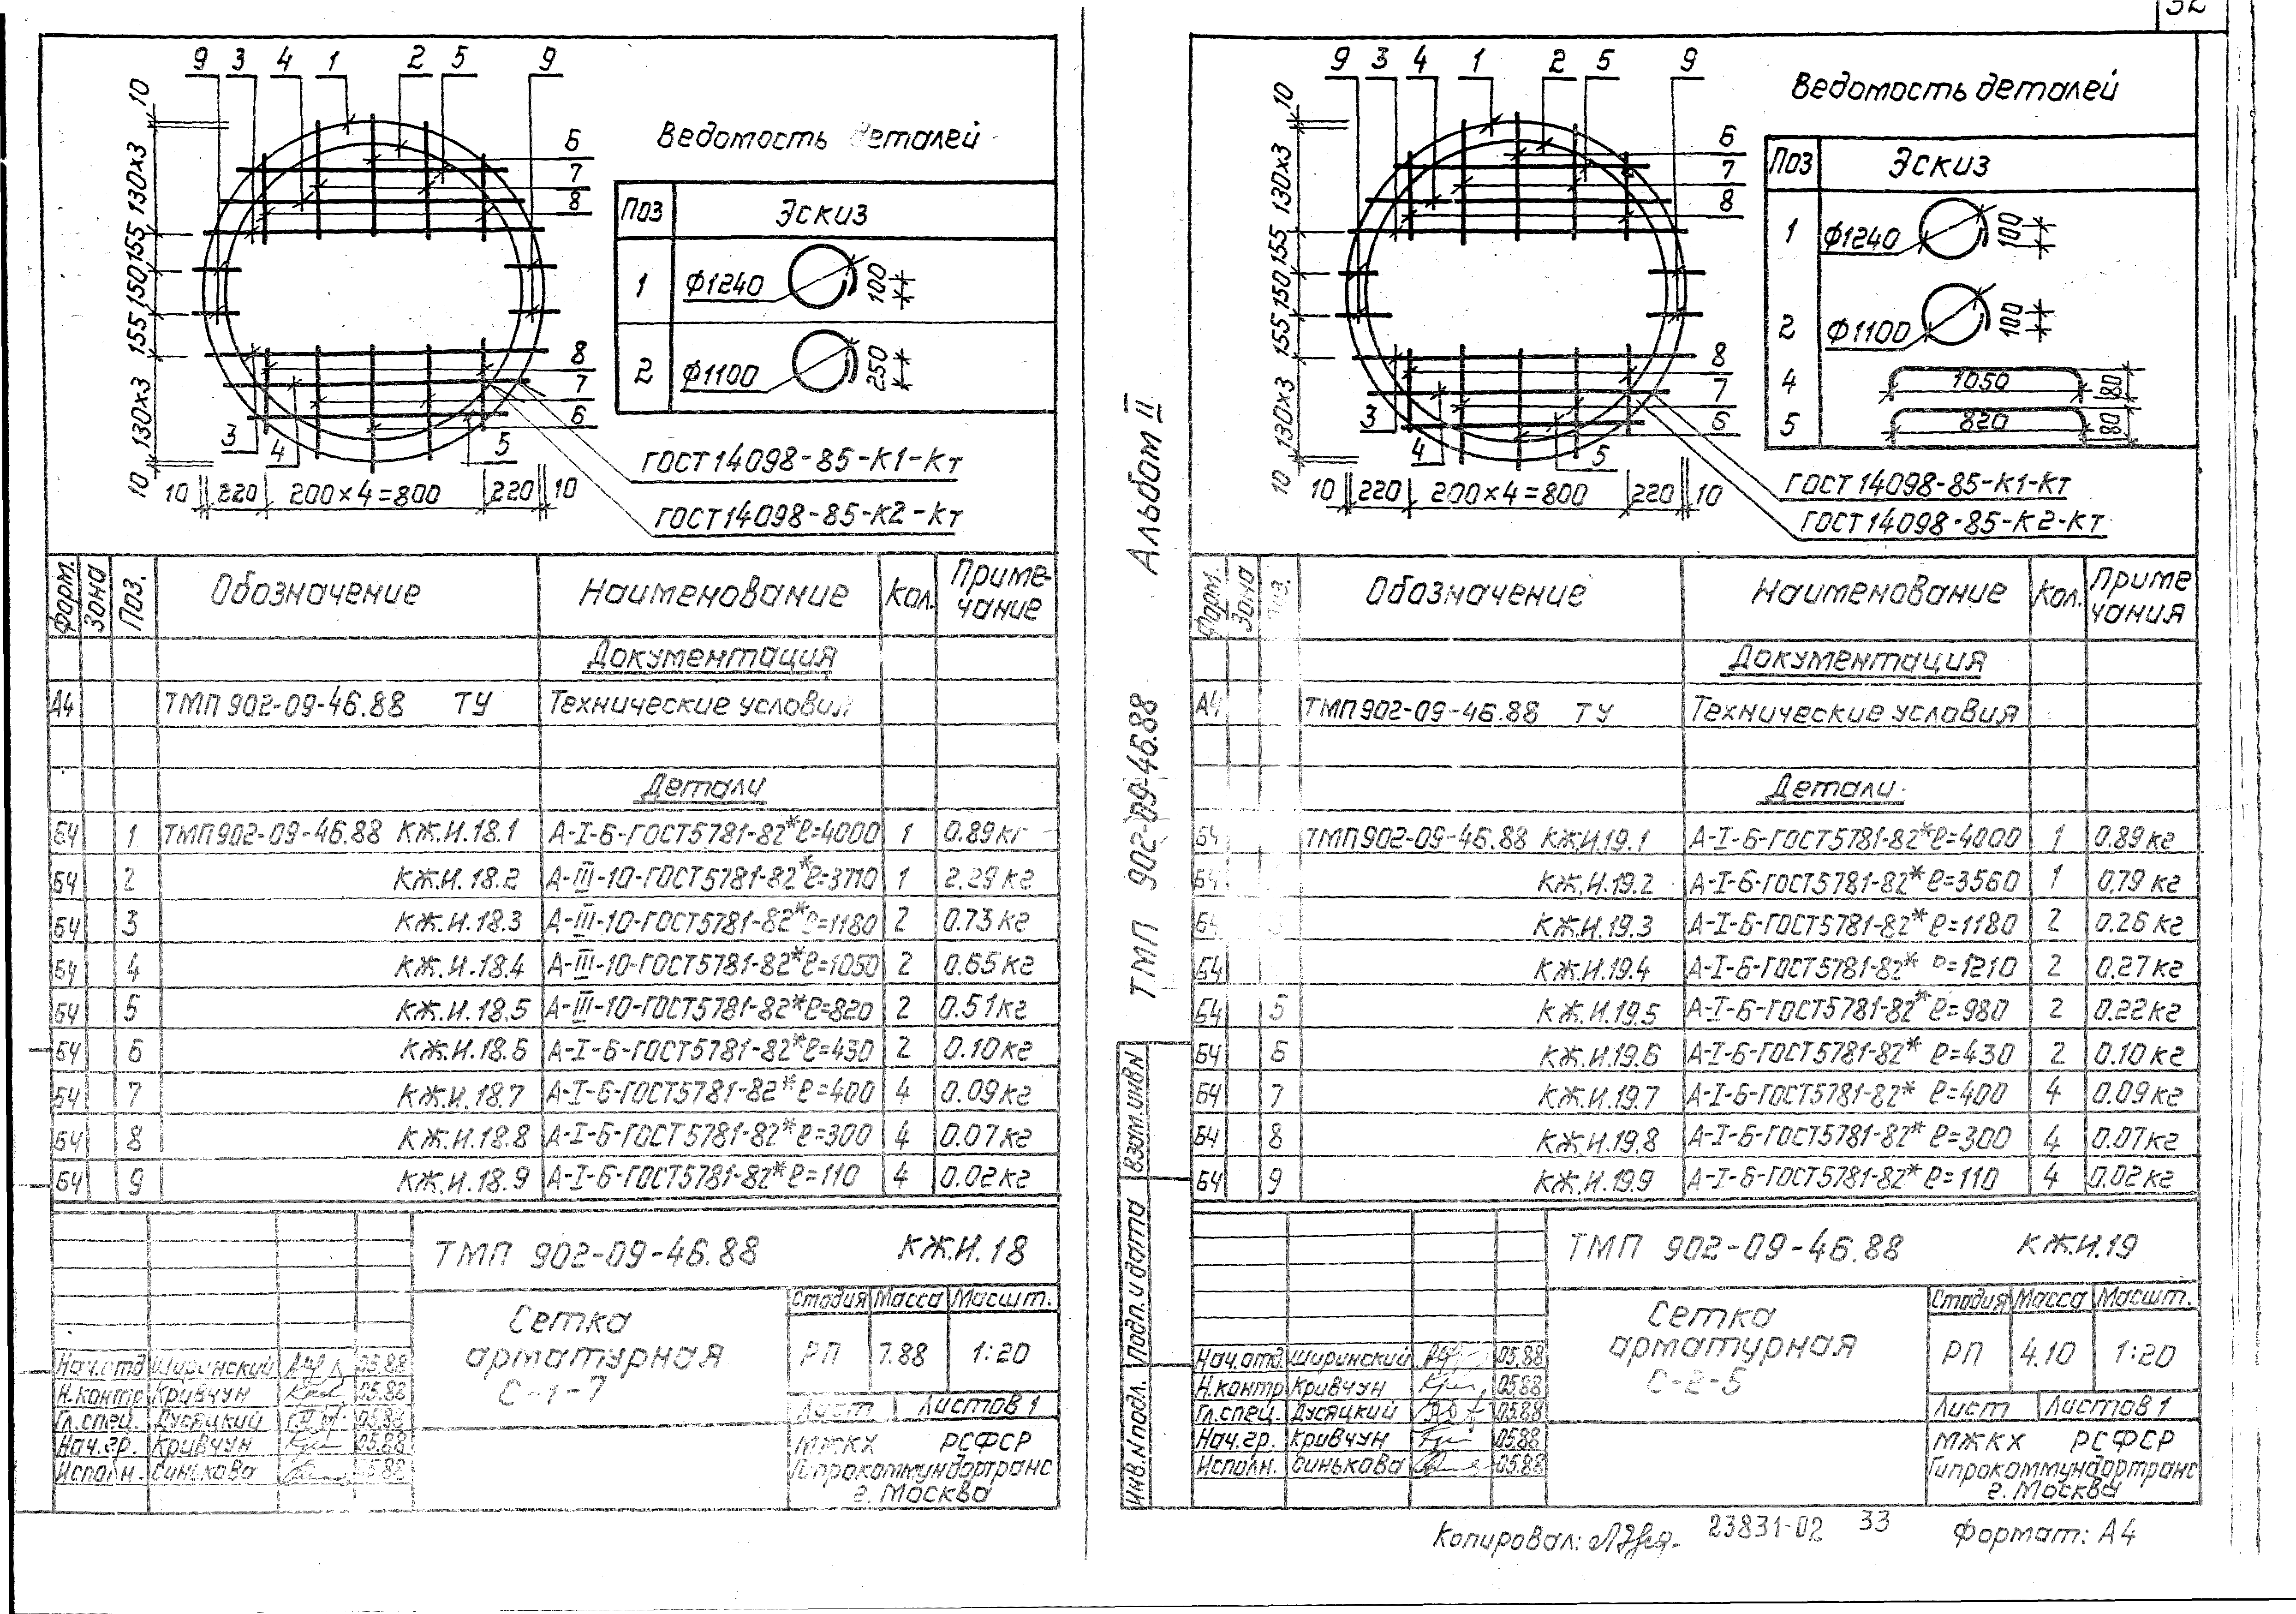 32
9 3 4 1 2 5 9
6
7
8
10
130x3
155
150
155
130x3
10
8
7
6
3 4 5
10 220 200x4=800 220 10
ГОСТ 14098-85-К1-Кт
ГОСТ 14098-85-К2-Кт
Ведомость деталей
Поз Эскиз
1 ф1240 100
2 ф1100 250
Форм. Зона Поз. Обозначение Наименование Кол. Приме-
чание
Документация
А4 ТМП 902-09-46.88 ТУ Технические условия
Детали
БЧ 1 ТМП 902-09-46.88 КЖ.И.18.1 А-I-6-ГОСТ5781-82* ℓ=4000 1 0.89кг
БЧ 2 КЖ.И.18.2 А-III-10-ГОСТ5781-82* ℓ=3710 1 2.29кг
БЧ 3 КЖ.И.18.3 А-III-10-ГОСТ5781-82* ℓ=1180 2 0.73кг
БЧ 4 КЖ.И.18.4 А-III-10-ГОСТ5781-82* ℓ=1050 2 0.65кг
БЧ 5 КЖ.И.18.5 А-III-10-ГОСТ5781-82* ℓ=820 2 0.51кг
БЧ 6 КЖ.И.18.6 А-I-6-ГОСТ5781-82* ℓ=430 2 0.10кг
БЧ 7 КЖ.И.18.7 А-I-6-ГОСТ5781-82* ℓ=400 4 0.09кг
БЧ 8 КЖ.И.18.8 А-I-6-ГОСТ5781-82* ℓ=300 4 0.07кг
БЧ 9 КЖ.И.18.9 А-I-6-ГОСТ5781-82* ℓ=110 4 0.02кг
ТМП 902-09-46.88 КЖ.И.18
Сетка
арматурная
С-1-7
Стадия Масса Масшт.
РП 7.88 1:20
Лист Листов 1
МЖКХ РСФСР
Гипрокоммундортранс
г. Москва
Нач.отд Ширинский 05.88
Н.контр Кривчун 05.88
Гл.спец. Дусяцкий 05.88
Нач.гр. Кривчун 05.88
Исполн. Синькова 05.88
Альбом II
ТМП 902-09-46.88
Взам.инв.N
Подп. и дата
Инв.N подл.
9 3 4 1 2 5 9
6
7
8
10
130x3
155
150
155
130x3
10
8
7
6
3 4 5
10 220 200x4=800 220 10
ГОСТ 14098-85-К1-Кт
ГОСТ 14098-85-К2-Кт
Ведомость деталей
Поз Эскиз
1 ф1240 100
2 ф1100 100
4 1050 80
5 820 80
Форм. Зона Поз. Обозначение Наименование Кол. Приме
чания
Документация
А4 ТМП 902-09-46.88 ТУ Технические условия
Детали
БЧ ТМП 902-09-46.88 КЖ.И.19.1 А-I-6-ГОСТ5781-82* ℓ=4000 1 0.89кг
БЧ КЖ.И.19.2 А-I-6-ГОСТ5781-82* ℓ=3560 1 0,79кг
БЧ 3 КЖ.И.19.3 А-I-6-ГОСТ5781-82* ℓ=1180 2 0.26кг
БЧ КЖ.И.19.4 А-I-6-ГОСТ5781-82* ℓ=1210 2 0.27кг
БЧ 5 КЖ.И.19.5 А-I-6-ГОСТ5781-82* ℓ=980 2 0.22кг
БЧ 6 КЖ.И.19.6 А-I-6-ГОСТ5781-82* ℓ=430 2 0.10кг
БЧ 7 КЖ.И.19.7 А-I-6-ГОСТ5781-82* ℓ=400 4 0.09кг
БЧ 8 КЖ.И.19.8 А-I-6-ГОСТ5781-82* ℓ=300 4 0.07кг
БЧ 9 КЖ.И.19.9 А-I-6-ГОСТ5781-82* ℓ=110 4 0.02кг
ТМП 902-09-46.88 КЖ.И.19
Сетка
арматурная
С-2-5
Стадия Масса Масшт.
РП 4.10 1:20
Лист Листов 1
МЖКХ РСФСР
Гипрокоммундортранс
г. Москва
Нач.отд. Ширинский 05.88
Н.контр Кривчун 05.88
Гл.спец. Дусяцкий 05.88
Нач.гр. Кривчун 05.88
Исполн. Синькова 05.88
Копировал: 23831-02 33 Формат: А4